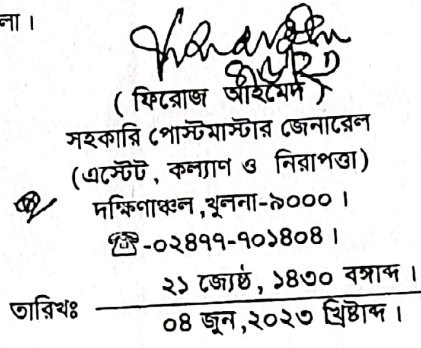 না।
( ফিরোজ আহমেদ )
সহকারি পোস্টমাস্টার জেনারেল
(এস্টেট, কল্যাণ ও নিরাপত্তা)
দক্ষিণাঞ্চল,খুলনা-৯০০০।
☎-০২৪৭৭-৭০১৪০৪।
২১ জ্যেষ্ঠ, ১৪৩০ বঙ্গাব্দ।
তারিখঃ
০৪ জুন,২০২৩ খ্রিষ্টাব্দ।